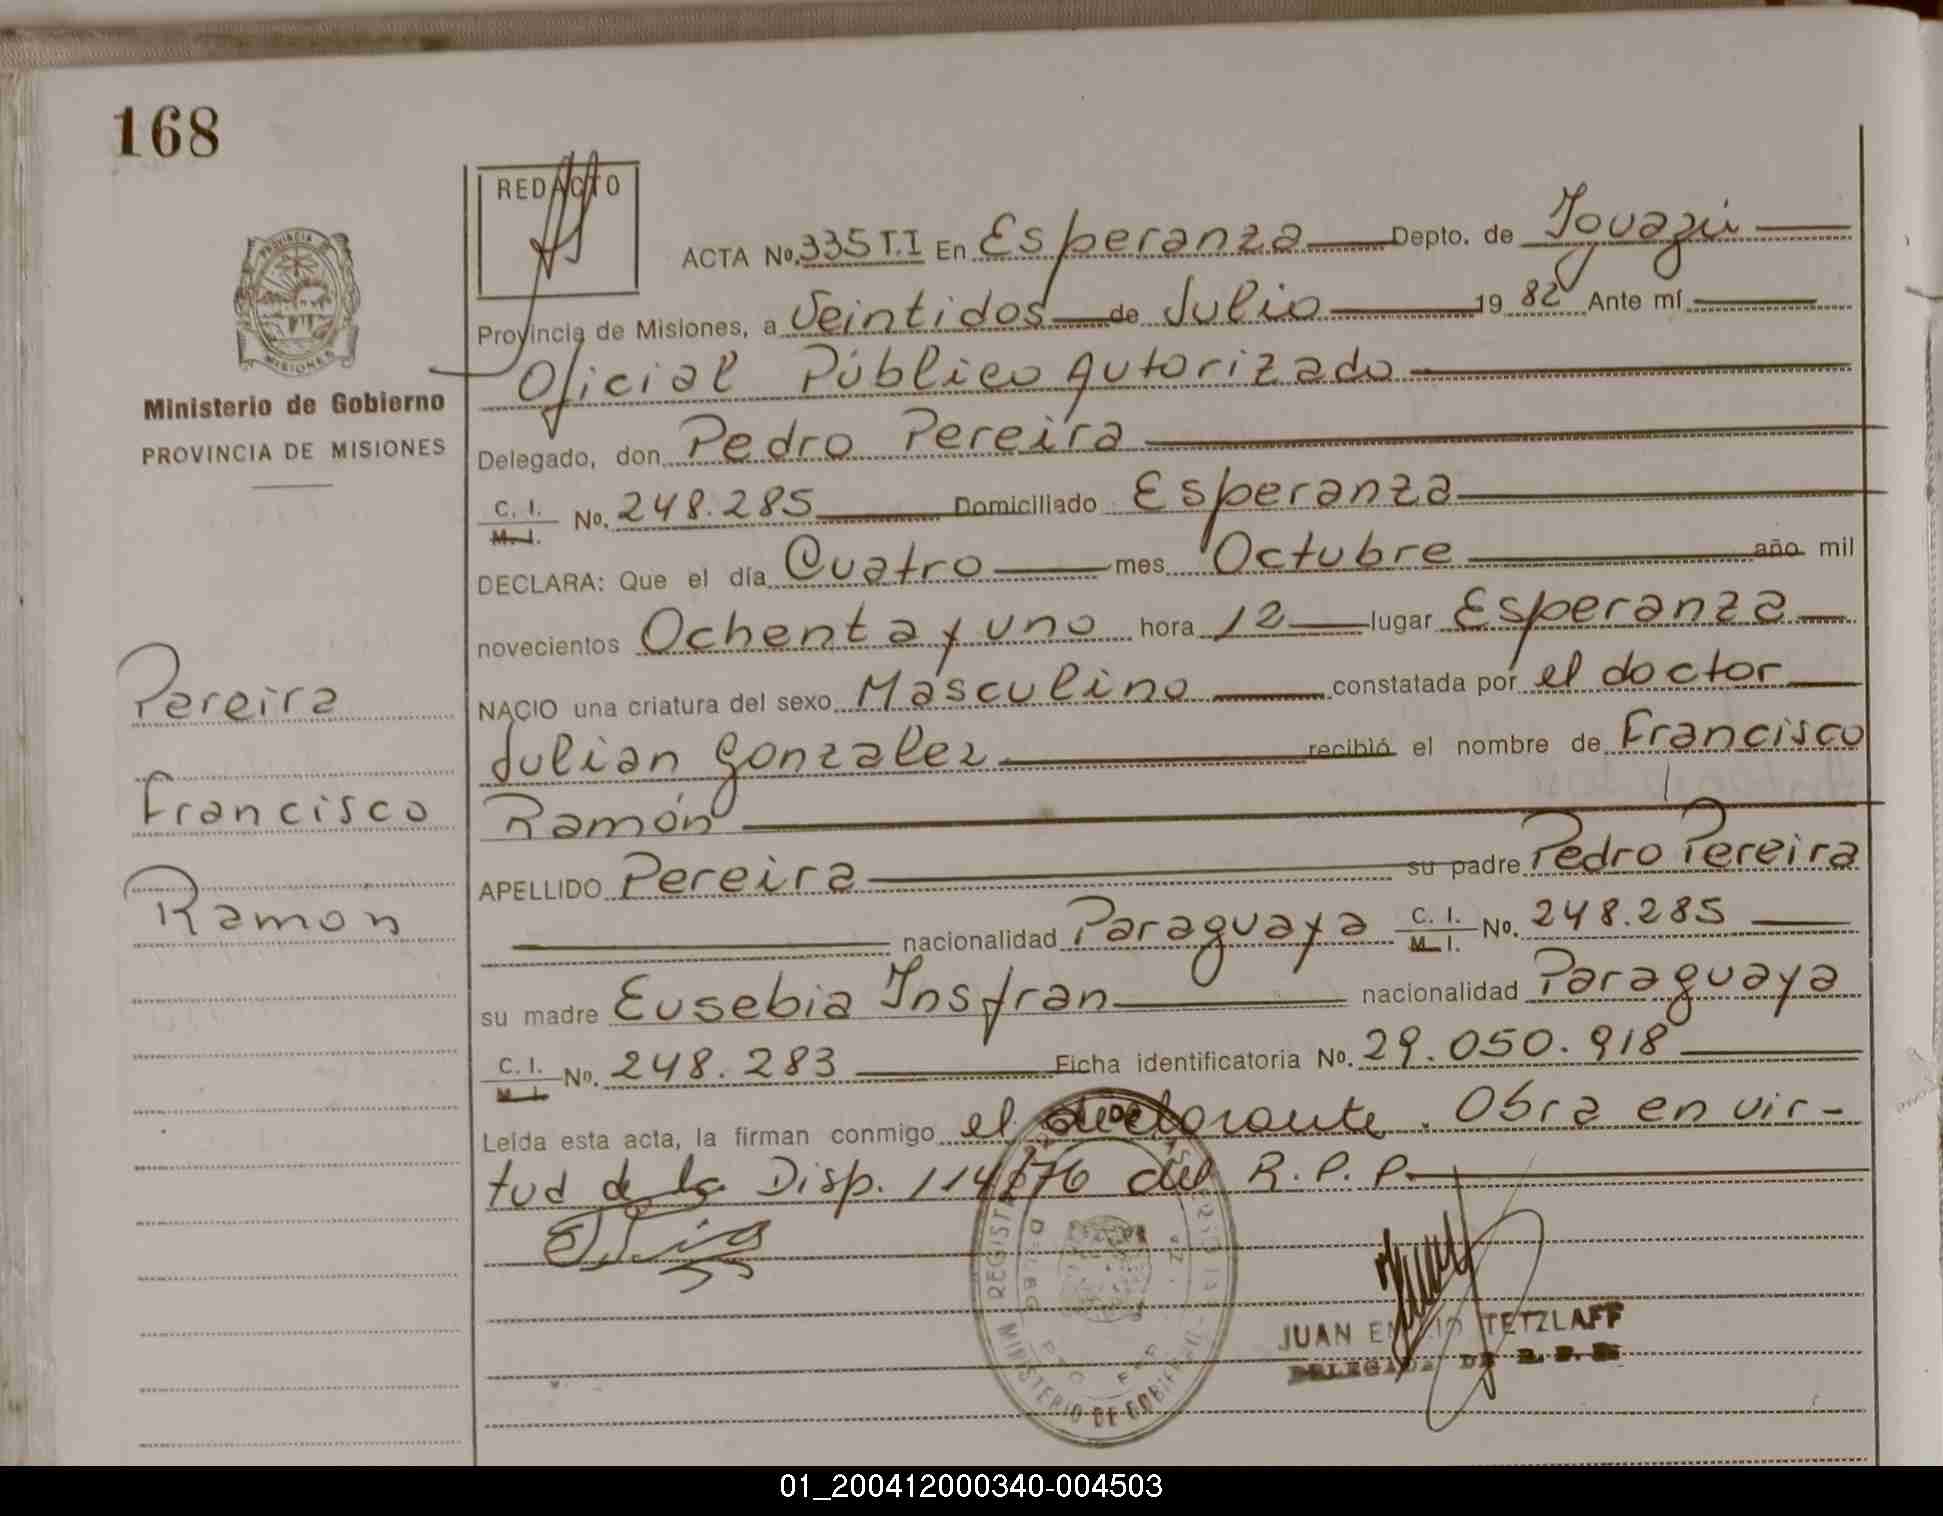 168
REDACTO
ACTA No. 335 T.I En Esperanza Depto. de Iguazú
Provincia de Misiones, a Veintidos de Julio 19 82 Ante mí
Oficial Público Autorizado
PROVINCIA
MISIONES
Ministerio de Gobierno
PROVINCIA DE MISIONES
Delegado, don Pedro Pereira
C. I. M. I. No. 248.285 Domiciliado Esperanza
DECLARA: Que el día Cuatro mes Octubre año mil
novecientos Ochenta y uno hora 12 lugar Esperanza
NACIO una criatura del sexo Masculino constatada por el doctor
Julian Gonzalez recibió el nombre de Francisco
Ramón
APELLIDO Pereira su padre Pedro Pereira
nacionalidad Paraguaya C. I. M. I. No. 248.285
su madre Eusebia Insfran nacionalidad Paraguaya
C. I. M. I. No. 248.283 Ficha identificatoria No. 29.050.918
Leída esta acta, la firman conmigo el declarante. Obra en vir-
tud de la Disp. 114/76 del R.P.P.
Pereira
Francisco
Ramon
MINISTERIO DE GOBIERNO
JUAN EMILIO TETZLAFF
01_200412000340-004503